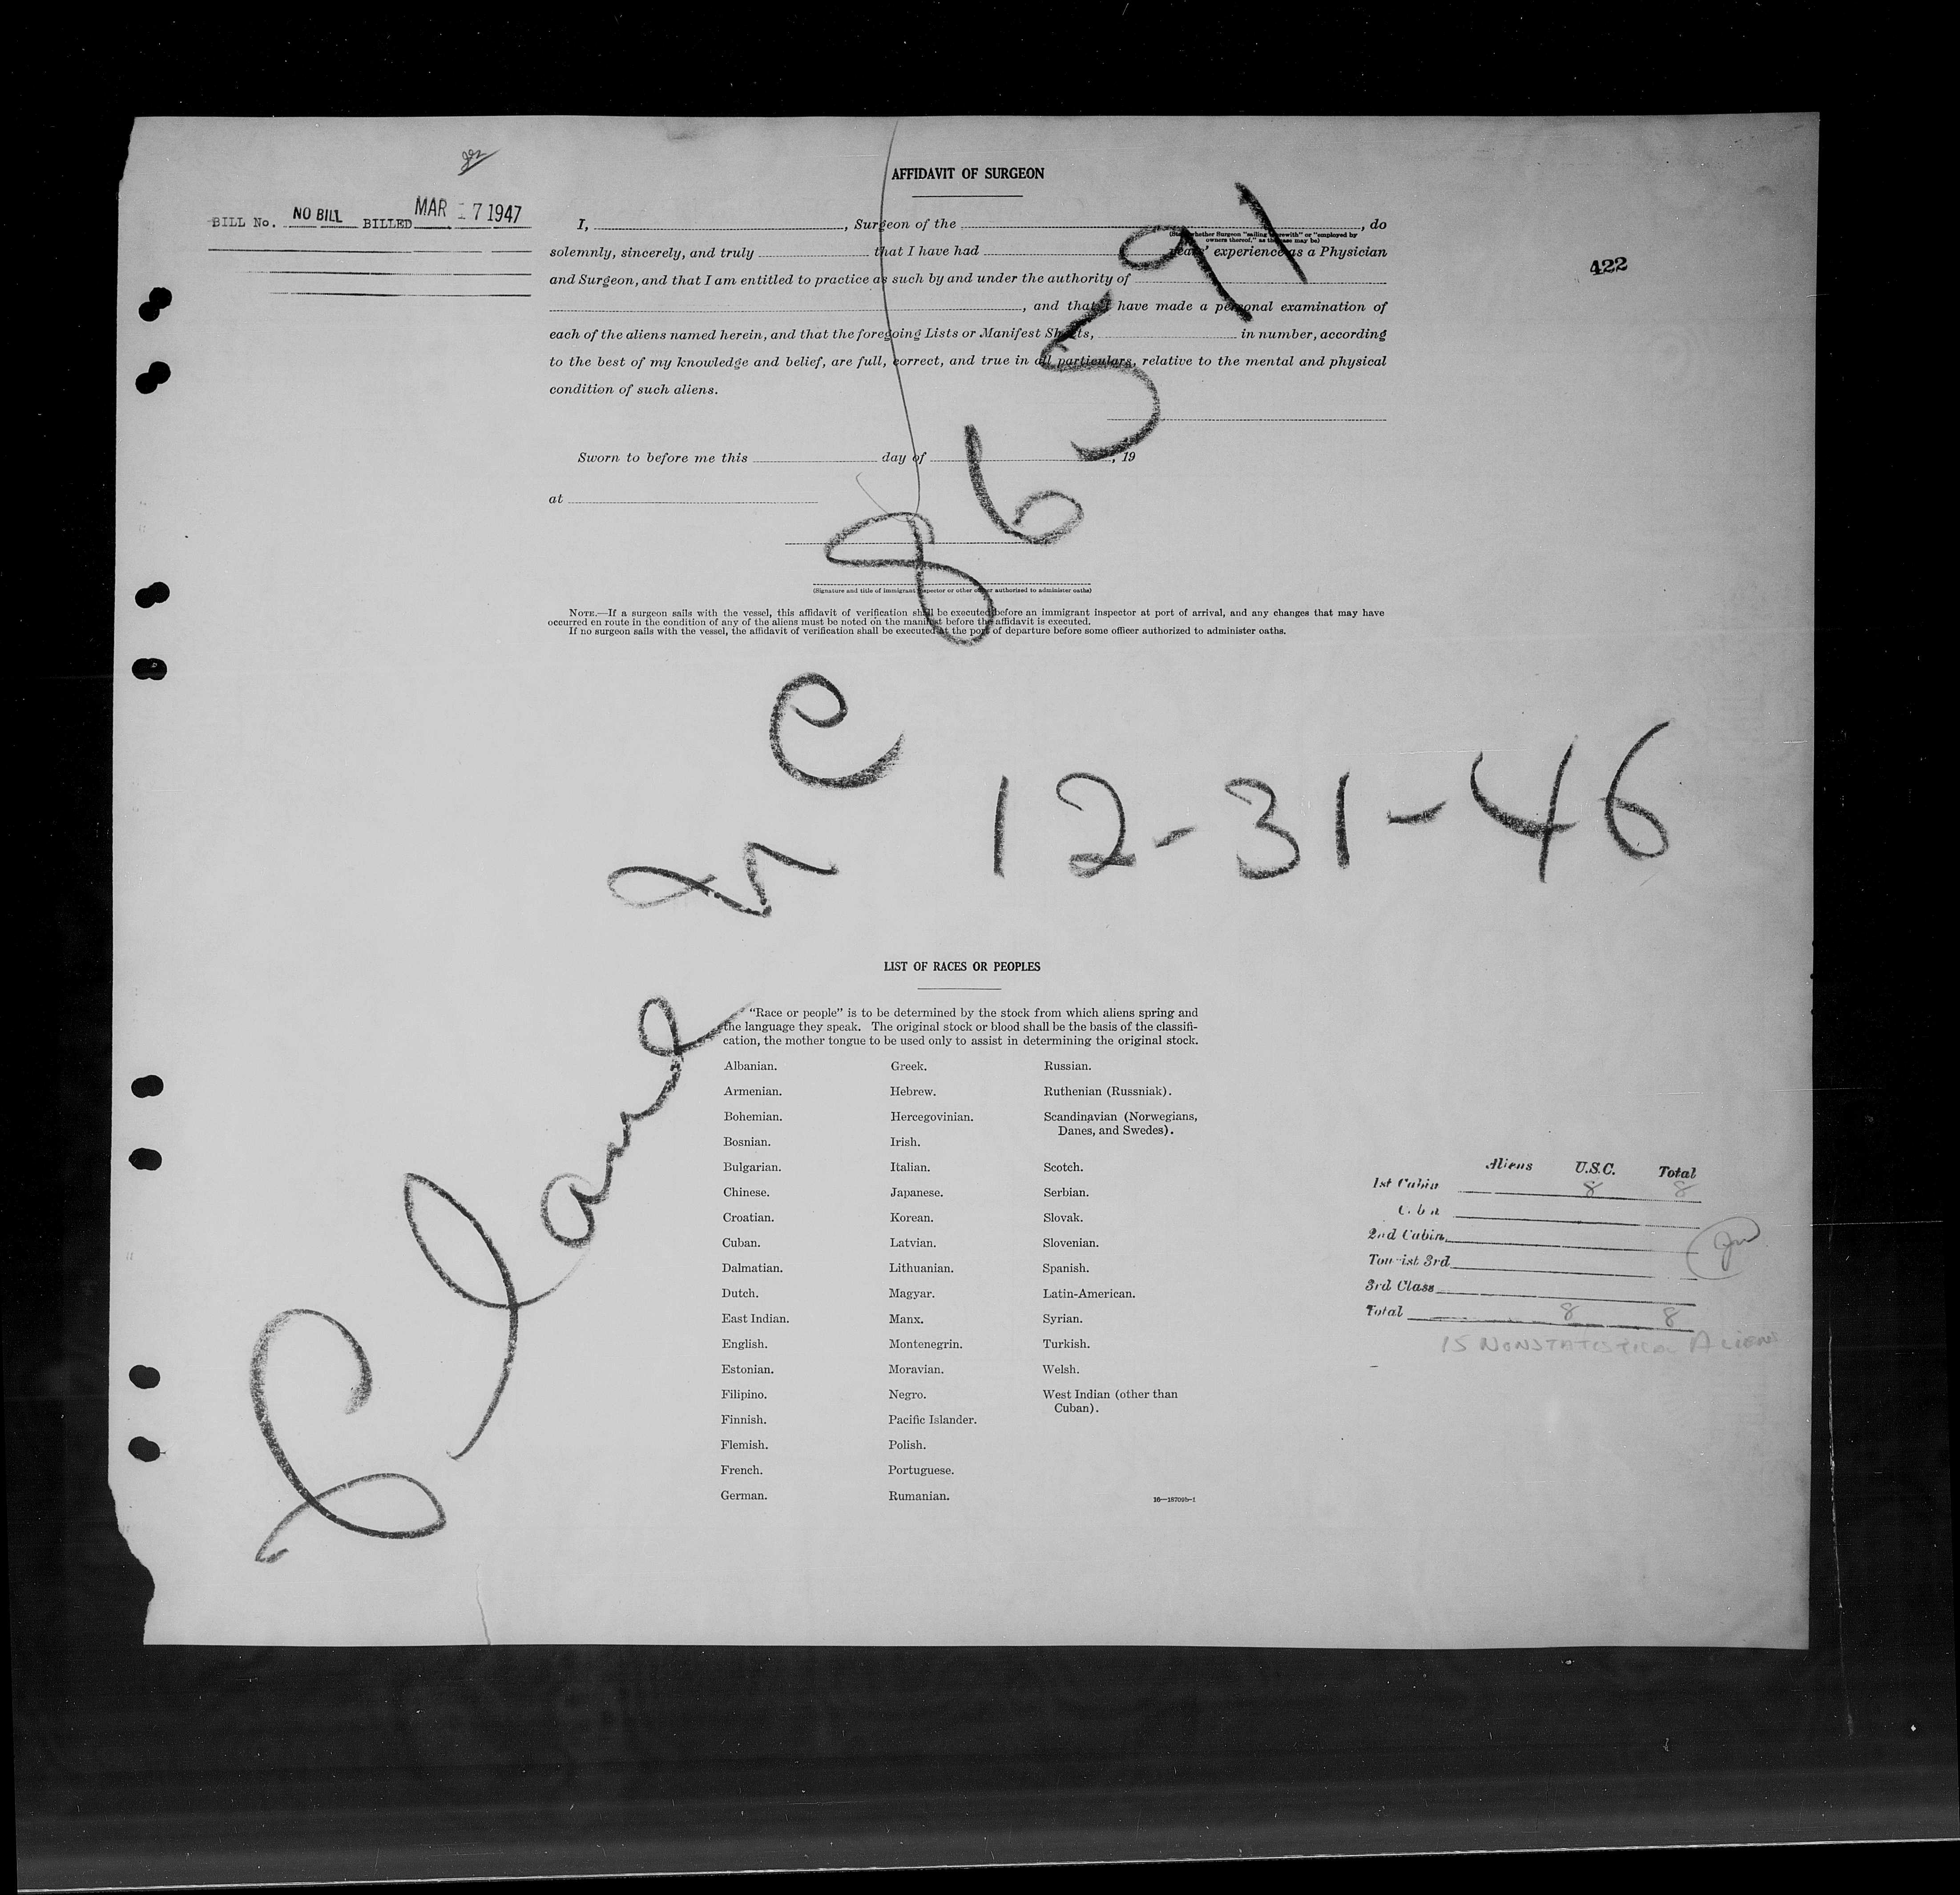 BILL No. NO BILL BILLED MAR 17 1947
AFFIDAVIT OF SURGEON
422
I, , Surgeon of the , do
(State whether Surgeon "sailing therewith" or "employed by
owners thereof," as the case may be)
solemnly, sincerely, and truly that I have had years' experience as a Physician
and Surgeon, and that I am entitled to practice as such by and under the authority of
, and that I have made a personal examination of
each of the aliens named herein, and that the foregoing Lists or Manifest Sheets, in number, according
to the best of my knowledge and belief, are full, correct, and true in all particulars, relative to the mental and physical
condition of such aliens.
Sworn to before me this day of , 19
at
(Signature and title of immigrant inspector or other officer authorized to administer oaths)
NOTE.—If a surgeon sails with the vessel, this affidavit of verification shall be executed before an immigrant inspector at port of arrival, and any changes that may have
occurred en route in the condition of any of the aliens must be noted on the manifest before the affidavit is executed.
If no surgeon sails with the vessel, the affidavit of verification shall be executed at the port of departure before some officer authorized to administer oaths.
Plane NC 86591
12-31-46
LIST OF RACES OR PEOPLES
"Race or people" is to be determined by the stock from which aliens spring and
the language they speak. The original stock or blood shall be the basis of the classifi-
cation, the mother tongue to be used only to assist in determining the original stock.
Albanian.
Armenian.
Bohemian.
Bosnian.
Bulgarian.
Chinese.
Croatian.
Cuban.
Dalmatian.
Dutch.
East Indian.
English.
Estonian.
Filipino.
Finnish.
Flemish.
French.
German.
Greek.
Hebrew.
Hercegovinian.
Irish.
Italian.
Japanese.
Korean.
Latvian.
Lithuanian.
Magyar.
Manx.
Montenegrin.
Moravian.
Negro.
Pacific Islander.
Polish.
Portuguese.
Rumanian.
Russian.
Ruthenian (Russniak).
Scandinavian (Norwegians,
Danes, and Swedes).
Scotch.
Serbian.
Slovak.
Slovenian.
Spanish.
Latin-American.
Syrian.
Turkish.
Welsh.
West Indian (other than
Cuban).
16—18709b-1
Aliens U.S.C. Total
1st Cabin 8 8
2nd Cabin
Tourist 3rd
3rd Class
Total 8 8
15 NONSTATISTICAL ALIENS